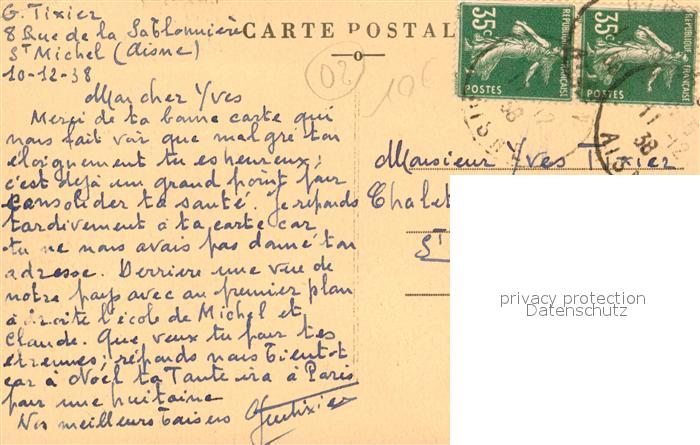 G. Tixier
8 Rue de la Sablonnière
St Michel (Aisne)
10-12-38
CARTE POSTAL
35c
RÉPUBLIQUE FRANÇAISE
POSTES
35c
RÉPUBLIQUE FRANÇAISE
POSTES
02
10€
Mon cher Yves
Merci de ta bonne carte qui
nous fait voir que malgré ton
éloignement tu es heureux;
c'est dejà un grand point pour
consolider ta santé. Je réponds
tardivement à ta carte car
tu ne nous avais pas donné ton
adresse. Derriere une vue de
notre pays avec au premier plan
à droite l'école de Michel et
Claude. Que veux tu pour tes
étrennes; réponds nous bientot
car à Noël ta Tante ira à Paris
pour une huitaine
Nos meilleurs baisers
Monsieur Yves Tixier
Chalet
St
11-12
38
AIS
privacy protection
Datenschutz